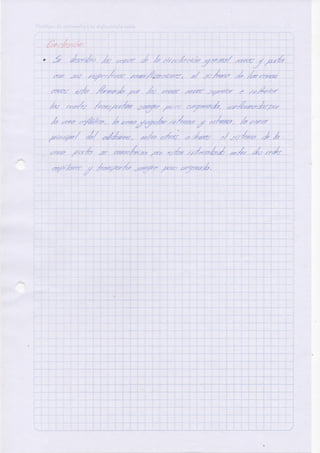 Conclusión:
• Se describió las venas de la circulación general venas y porta
con sus respectivas manifestaciones, el sistema de las venas
cavas esta formado por las venas cavas superior e inferior
las cuales transportan sangre poco oxigenada,
la vena cefálica, la vena yugular interna y externa, la vena
principal del abdomen, entre otras, el sistema de la
vena porta se caracteriza por estar entre dos redes
capilares y transporta sangre poco oxigenada.